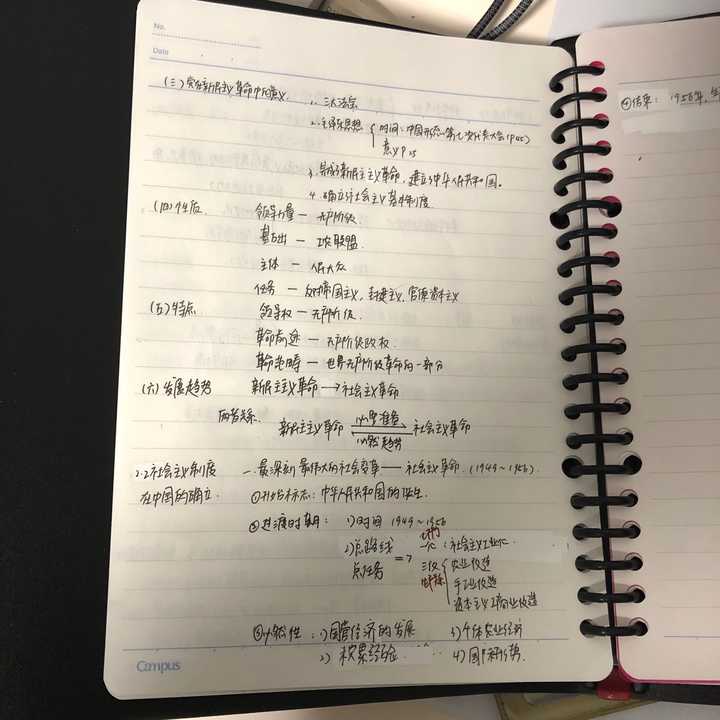 No.
Date
(三)实在新民主义革命中的意义. 1. 三大法宝
2.毛泽东思想 { 时间:中国共产党第七次代表大会(1945)
意义 P15
3.完成了新民主主义革命,建立了中华人民共和国。
4.确立了社会主义基本制度
(四)性质 领导力量 — 无产阶级.
基础 — 工农联盟
主体 — 人民大众
任务 — 反对帝国主义,封建主义,官僚资本主义
(五)特点 领导权 — 无产阶级.
革命前途 — 无产阶级政权.
革命 — 世界无产阶级革命的一部分
(六)发展趋势 新民主主义革命 → 社会主义革命
两者关系. 新民主主义革命 必要准备 社会主义革命
必然趋势
2.2社会主义制度 一.最深刻最伟大的社会变革 — 社会主义革命.(1949~1956).
在中国的确立. ①开始标志:中华人民共和国的诞生.
②过渡时期: 1)时间 1949~1956
2)总路线 => 一化:社会主义工业化
总任务 三改 { 农业改造
手工业改造
资本主义工商业改造
③必然性:1)国营经济的发展 3)个体农业经济
2) 积累经验 4)国际新形势.
Campus
④结束: 1956年,